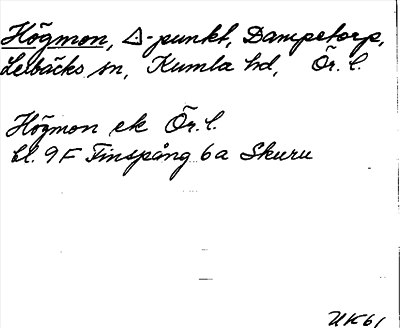 Högmon, △-punkt, Dampetorp,
Lerbäcks sn, Kumla hd, Ör. l.
Högmon ek Ör. l.
bl. 9F Finspång 6a Skuru
UK61